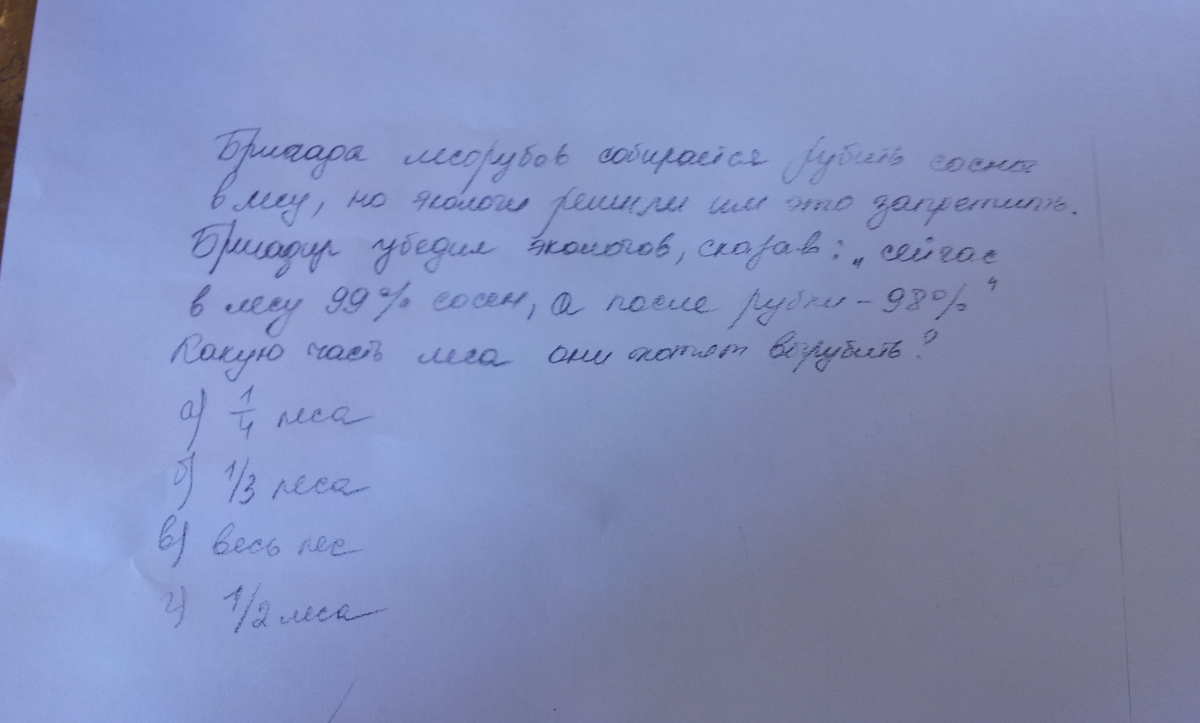 Бригада лесорубов собирается рубить сосны
в лесу, но экологи решили им это запретить.
Бригадир убедил экологов, сказав: „сейчас
в лесу 99% сосен, а после рубки – 98%"
Какую часть леса они хотят вырубить?
а) 1/4 леса
б) 1/3 леса
в) весь лес
г) 1/2 леса